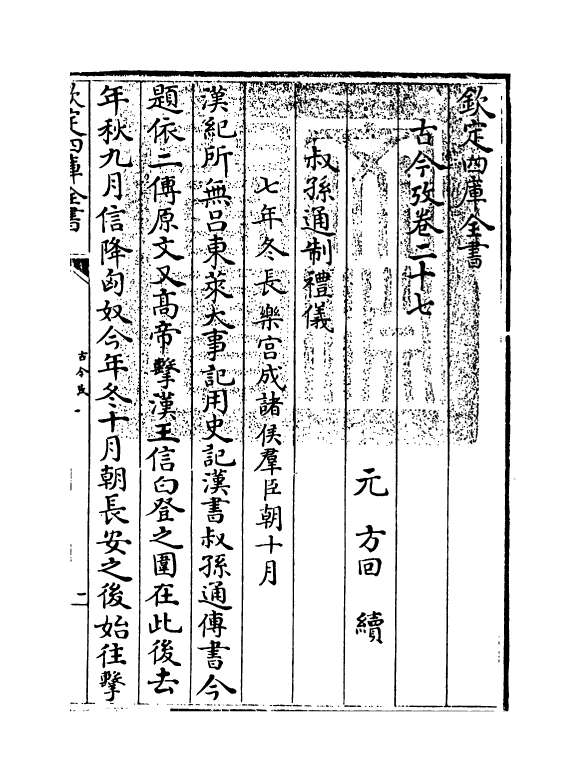 欽定四庫全書
古今攷卷二十七
元 方回 續
叔孫通制禮儀
七年冬長樂宫成諸侯羣臣朝十月
漢紀所無吕東萊大事記用史記漢書叔孫通傳書今
題依二傳原文又髙帝擊漢王信白登之圍在此後去
年秋九月信降匈奴今年冬十月朝長安之後始往擊
欽定四庫全書
古今攷
一